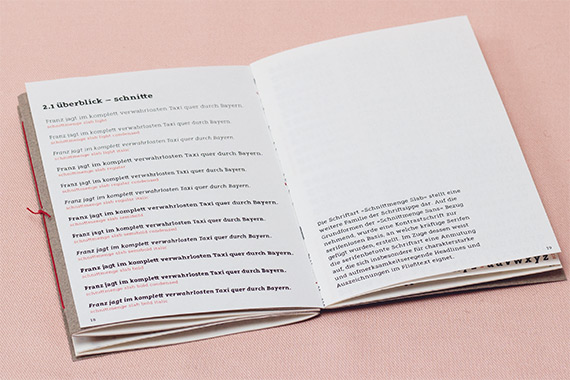 2.1 überblick – schnitte
Franz jagt im komplett verwahrlosten Taxi quer durch Bayern.
schnittmenge slab light
Franz jagt im komplett verwahrlosten Taxi quer durch Bayern.
schnittmenge slab light condensed
Franz jagt im komplett verwahrlosten Taxi quer durch Bayern.
schnittmenge slab light italic
Franz jagt im komplett verwahrlosten Taxi quer durch Bayern.
schnittmenge slab regular
Franz jagt im komplett verwahrlosten Taxi quer durch Bayern.
schnittmenge slab regular condensed
Franz jagt im komplett verwahrlosten Taxi quer durch Bayern.
schnittmenge slab regular italic
Franz jagt im komplett verwahrlosten Taxi quer durch Bayern.
schnittmenge slab semibold
Franz jagt im komplett verwahrlosten Taxi quer durch Bayern.
schnittmenge slab semibold condensed
Franz jagt im komplett verwahrlosten Taxi quer durch Bayern.
schnittmenge slab semibold italic
Franz jagt im komplett verwahrlosten Taxi quer durch Bayern.
schnittmenge slab bold
Franz jagt im komplett verwahrlosten Taxi quer durch Bayern.
schnittmenge slab bold condensed
Franz jagt im komplett verwahrlosten Taxi quer durch Bayern.
schnittmenge slab bold italic
18
Die Schriftart »Schnittmenge Slab« stellt eine
weitere Familie der Schriftsippe dar. Auf die
Grundformen der »Schnittmenge Sans« Bezug
nehmend, wurde eine Kontrastschrift zur
serifenlosen Basis, an welche kräftige Serifen
gefügt wurden, erstellt. Im Zuge dessen weist
die serifenbetonte Schriftart eine Anmutung
auf, die sich insbesondere für charakterstarke
und aufmerksamkeitserregende Headlines und
Auszeichnungen im Fließtext eignet.
19
u v w x y z